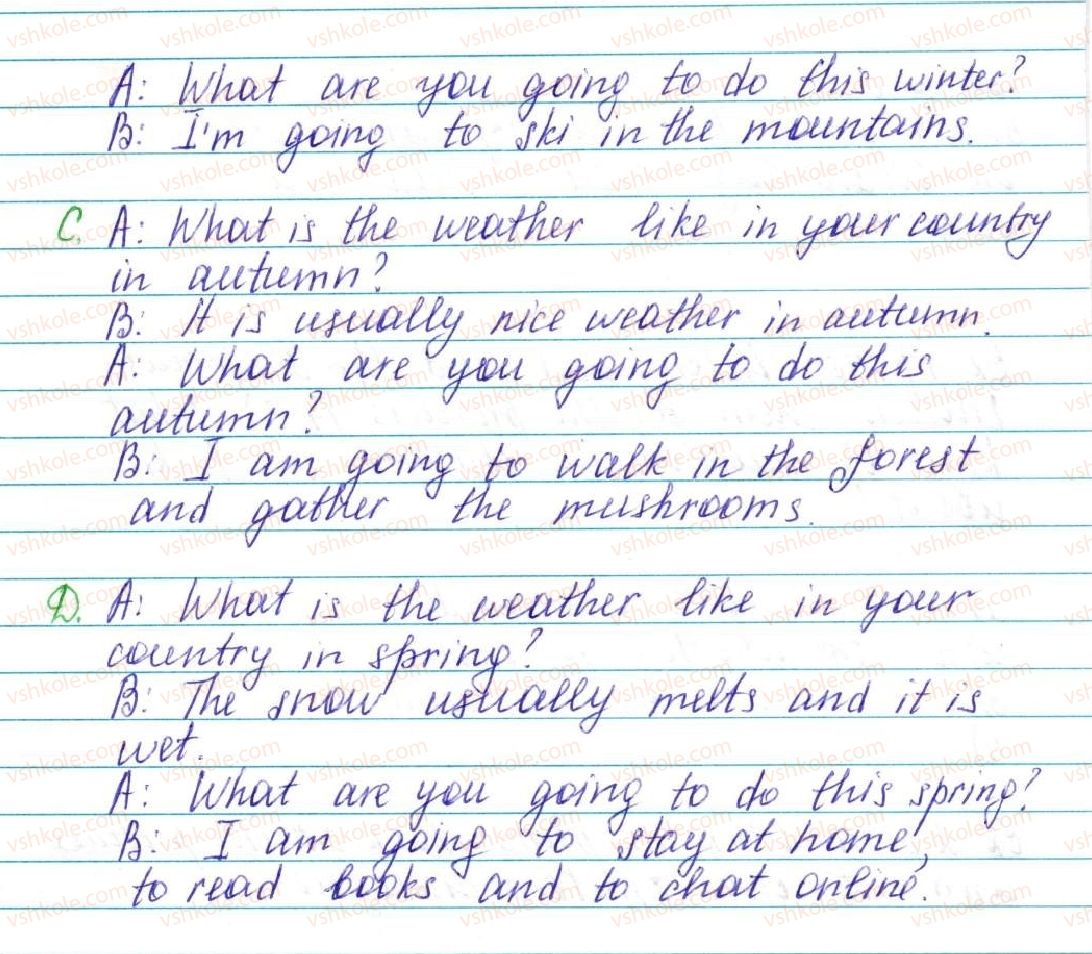 A: What are you going to do this winter?
B: I'm going to ski in the mountains.
C. A: What is the weather like in your country
in autumn?
B: It is usually nice weather in autumn.
A: What are you going to do this
autumn?
B: I am going to walk in the forest
and gather the mushrooms.
D. A: What is the weather like in your
country in spring?
B: The snow usually melts and it is
wet.
A: What are you going to do this spring?
B: I am going to stay at home,
to read books and to chat online.
vshkole.com